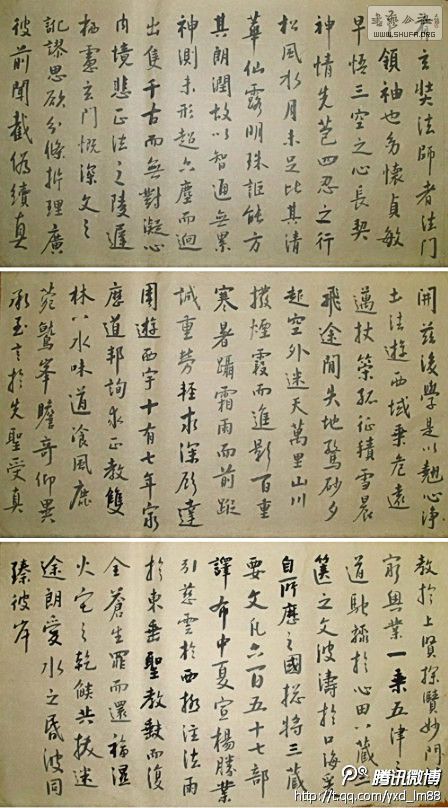 書藝公社
WWW.SHUFA.ORG
有玄奘法師者法門
領袖也幼懷貞敏
早悟三空之心長契
神情先苞四忍之行
松風水月未足比其清
華仙露明珠詎能方
其朗潤故以智通無累
神測未形超六塵而迥
出隻千古而無對凝心
内境悲正法之陵遲
栖慮玄門慨深文之
訛謬思欲分條析理廣
彼前聞截偽續真
開茲後學是以翹心淨
土法遊西域乘危遠
邁杖策孤征積雪晨
飛途閒失地驚砂夕
起空外迷天萬里山川
撥煙霞而進影百重
寒暑躡霜雨而前蹤
誠重勞輕求深願達
周遊西宇十有七年窮
歷道邦詢求正教雙
林八水味道飡風鹿
菀鷲峯瞻奇仰異
承至言於先聖受真
教於上賢探賾妙門
窮奧業一乘五律之
道馳驟於心田八藏三
篋之文波濤於口海爰
自所歷之國總將三藏
要文凡六百五十七部
譯布中夏宣揚勝業
引慈雲於西極注法雨
於東垂聖教缺而復
全蒼生罪而還福濕
火宅之乾燄共拔迷
途朗愛水之昏波同
臻彼岸
腾讯微博
http://t.qq.com/yxd_lm88